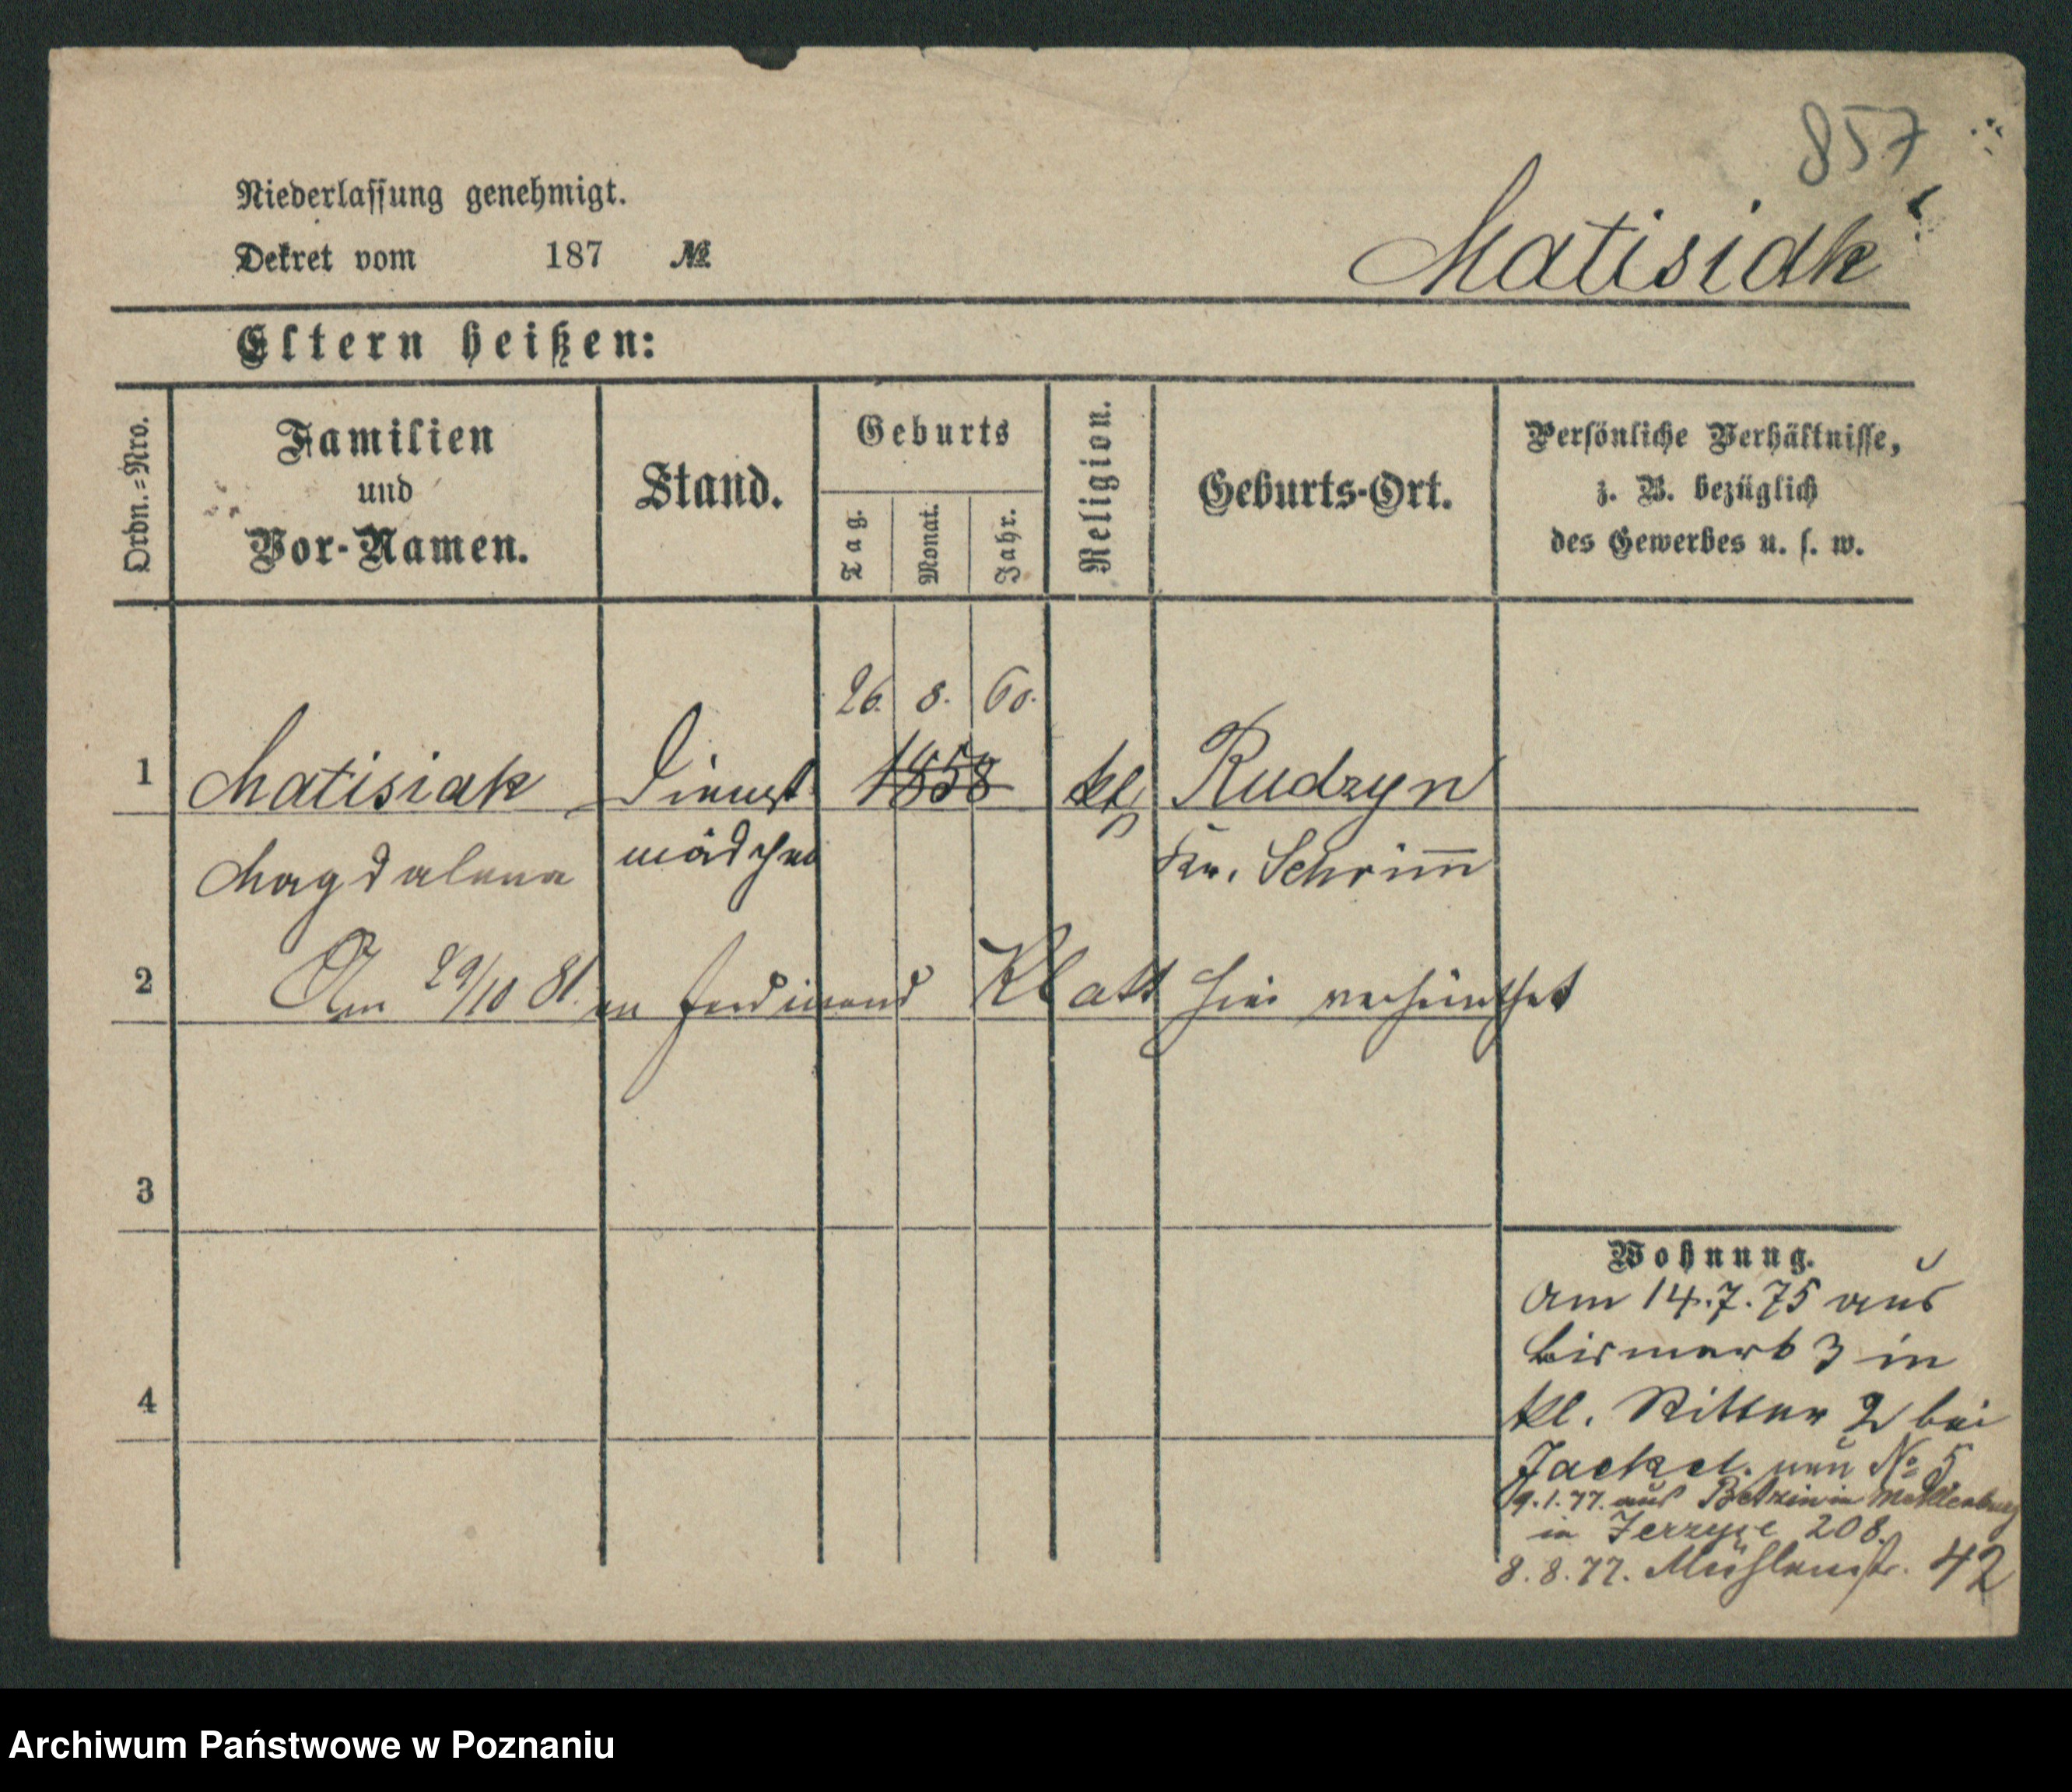 857
Niederlassung genehmigt.
Dekret vom 187 №
Matisiak
Eltern heißen:
Ordn.=Nro.
Familien
und
Vor-Namen.
Stand.
Geburts
Tag.
Monat.
Jahr.
Religion.
Geburts-Ort.
Persönliche Verhältnisse,
z. B. bezüglich
des Gewerbes u. s. w.
26. 8. 60.
1 Matisiak Dienst 1858 kt Rudzyn
Magdalena mädchen Kr. Schrim̅
2 Am 29/10 81. an Ferdinand Klatt hier verheirathet
3
4
Wohnung.
Am 14.7.75 aus
Bismark 3 in
kl. Ritter 2 bei
Jackel. neu № 5
9.1.77. aus in Mecklenburg
in Jerzyce 208.
8.8.77. Mühlenstr. 42
Archiwum Państwowe w Poznaniu